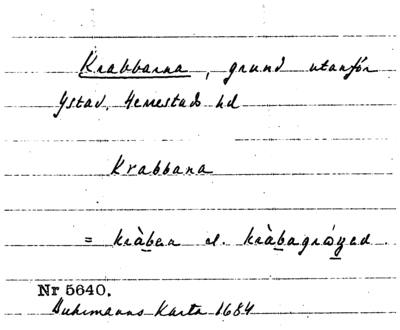 Krabbarna, grund utanför
Ystad, Herrestads hd
Krabbana
= kràban el. kràbagrὼned.
Nr 5640.
Buhrmanns Karta 1684